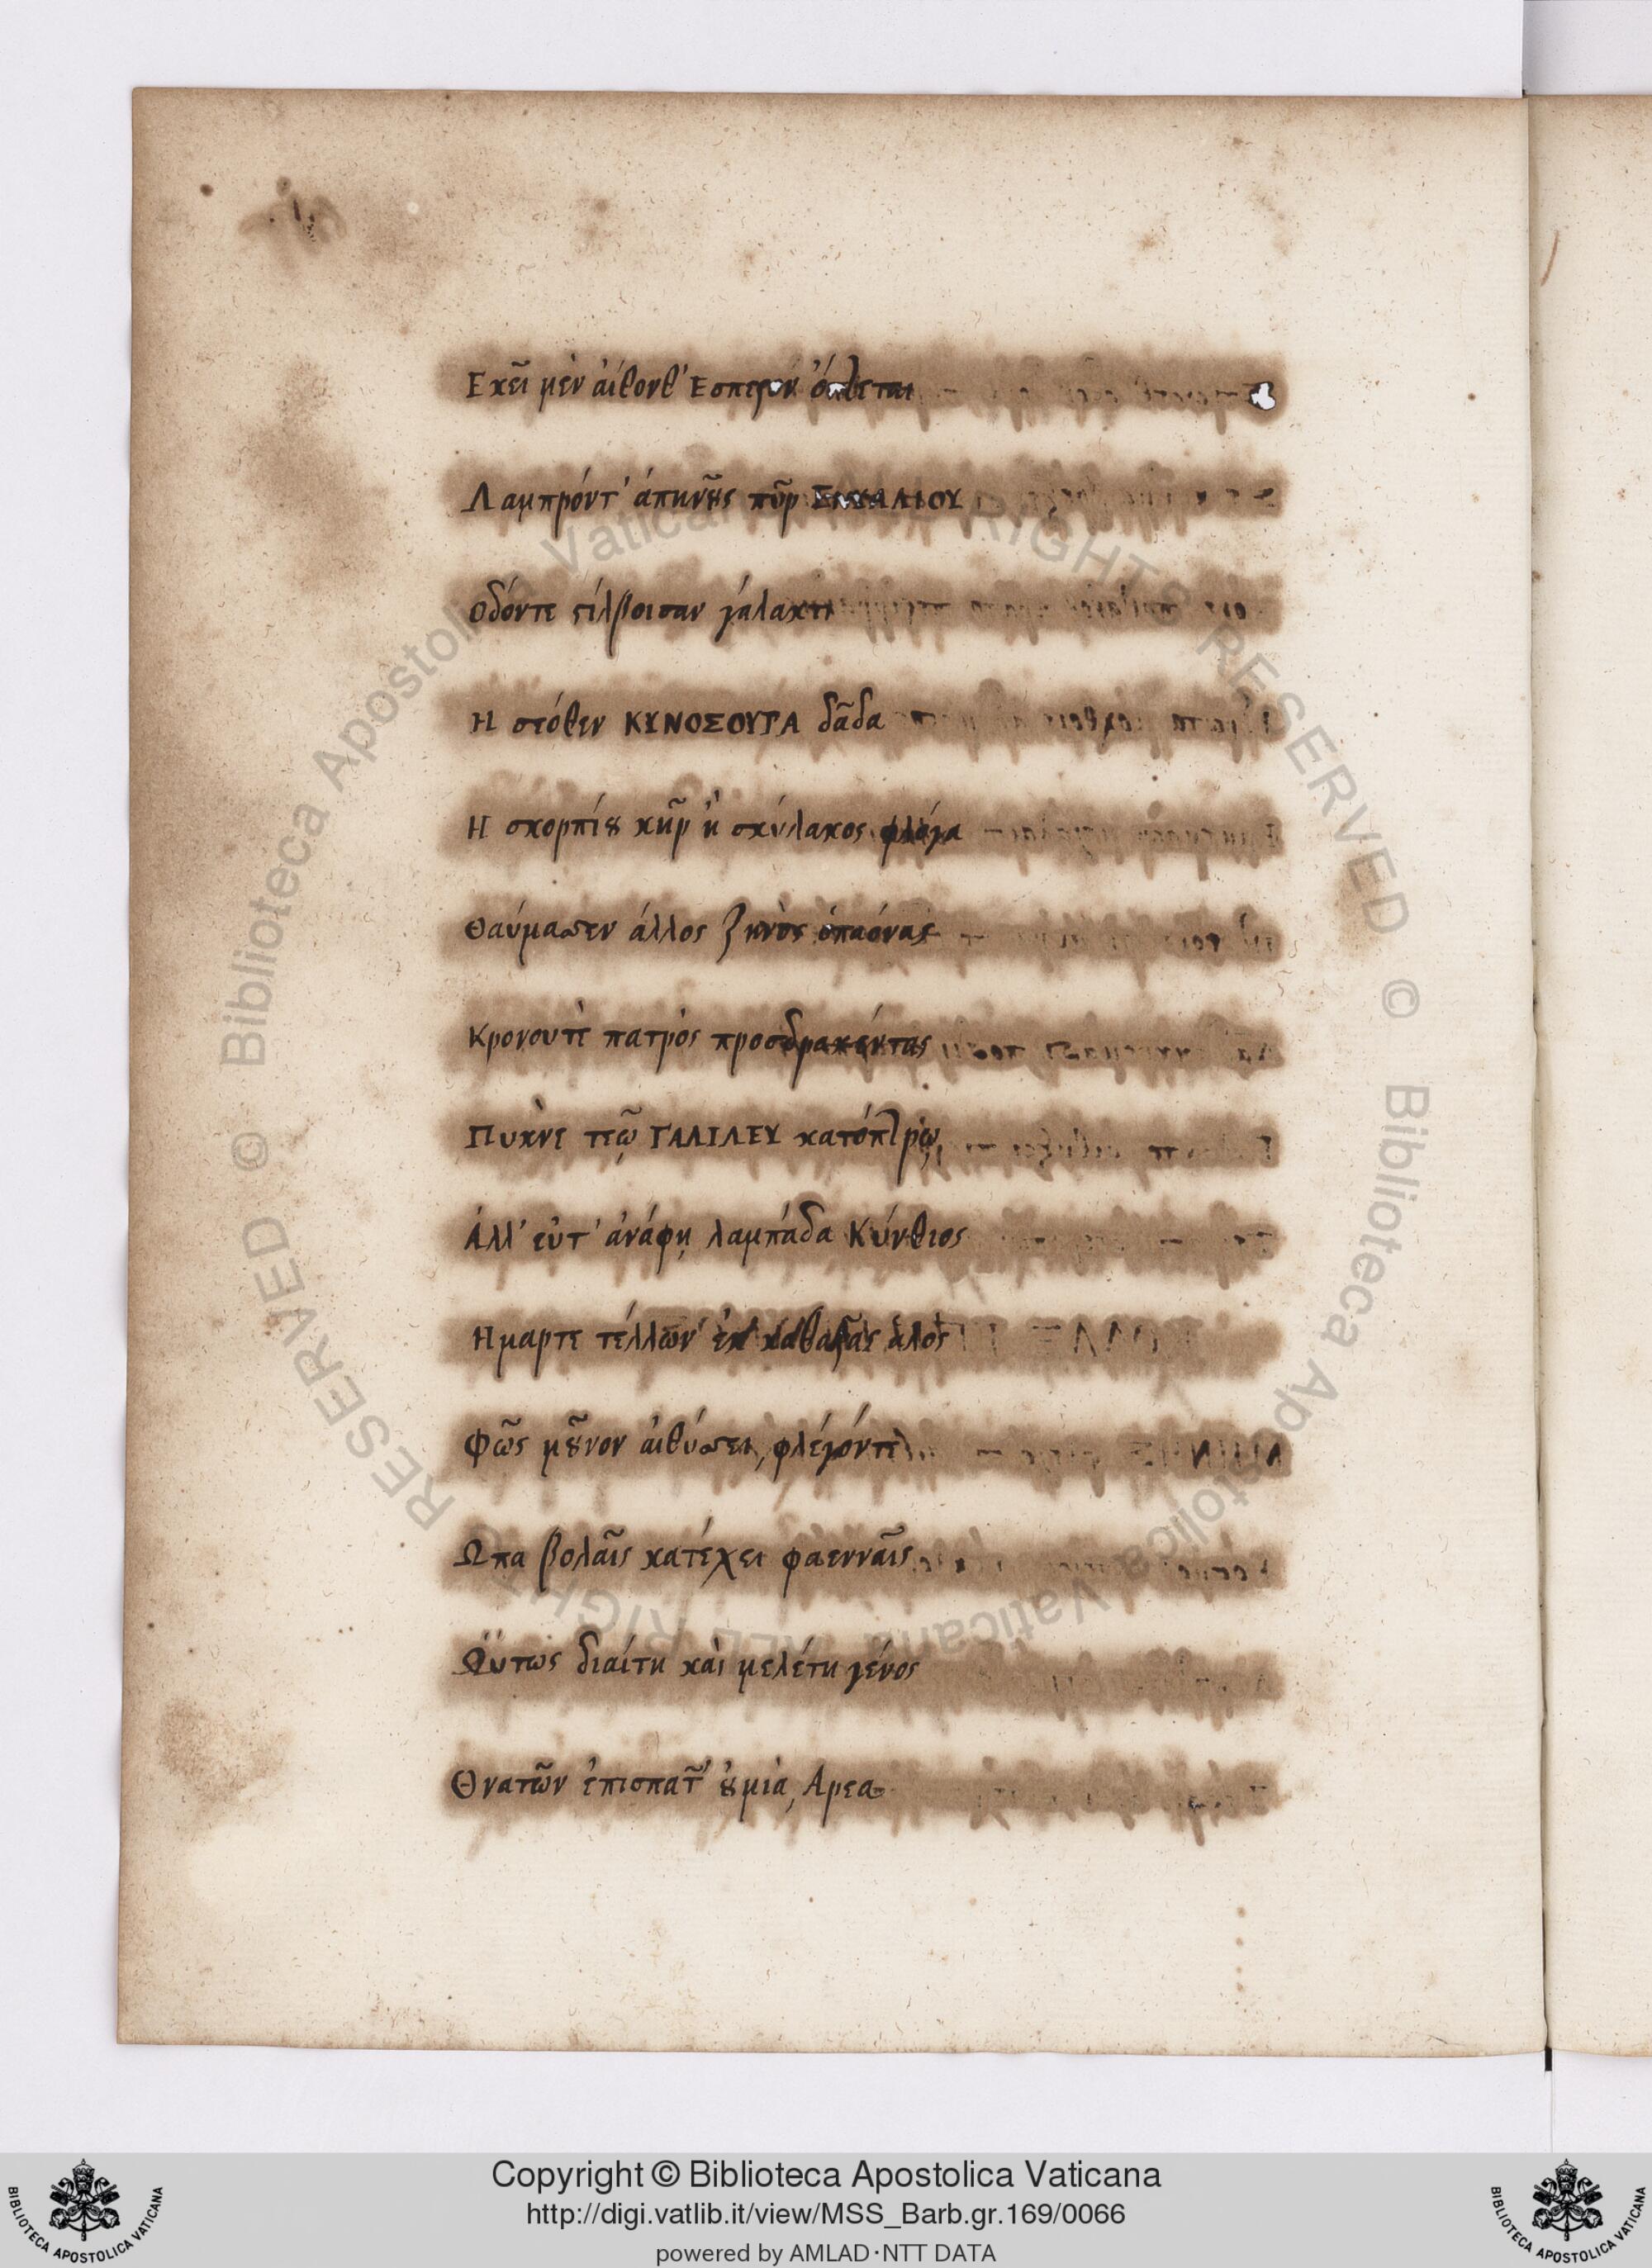 Εκεῖ μὲν ἀίθονθ' Εσπερον
Λαμπρόντ' ἀπηνοῦς πῦρ
οδόντε στίλβοισαν γάλακτι
Η στόθεν ΚΥΝΟΣΟΥΡΑ δᾶδα
Η σκορπίου κῆρ ἢ σκύλακος φλόγα
Θαύμασεν άλλος ζηνὸς ὀπαόνας
Κρονουτὲ πατρὸς προσδρακέντας
Πυκνὲ τεῷ ΓΑΛΙΛΕΥ κατόπτρῳ
Ἀλλ' εὖτ' ἀνάφη λαμπάδα Κύνθιος
Ημαρτε τέλλων ἐκ καθαρᾶς ἁλός
Φῶς μοῦνον ἀιθύσει, φλέγοντε
Ωπα βολᾶις κατέχει φαενναῖς
Ωϋτως διαίτη κὰι μελέτη γένος
Θνατῶν ἐπισπᾶτ' ουμία, Αρεα
Copyright © Biblioteca Apostolica Vaticana
http://digi.vatlib.it/view/MSS_Barb.gr.169/0066
powered by AMLAD·NTT DATA
BIBLIOTECA APOSTOLICA VATICANA
BIBLIOTECA APOSTOLICA VATICANA